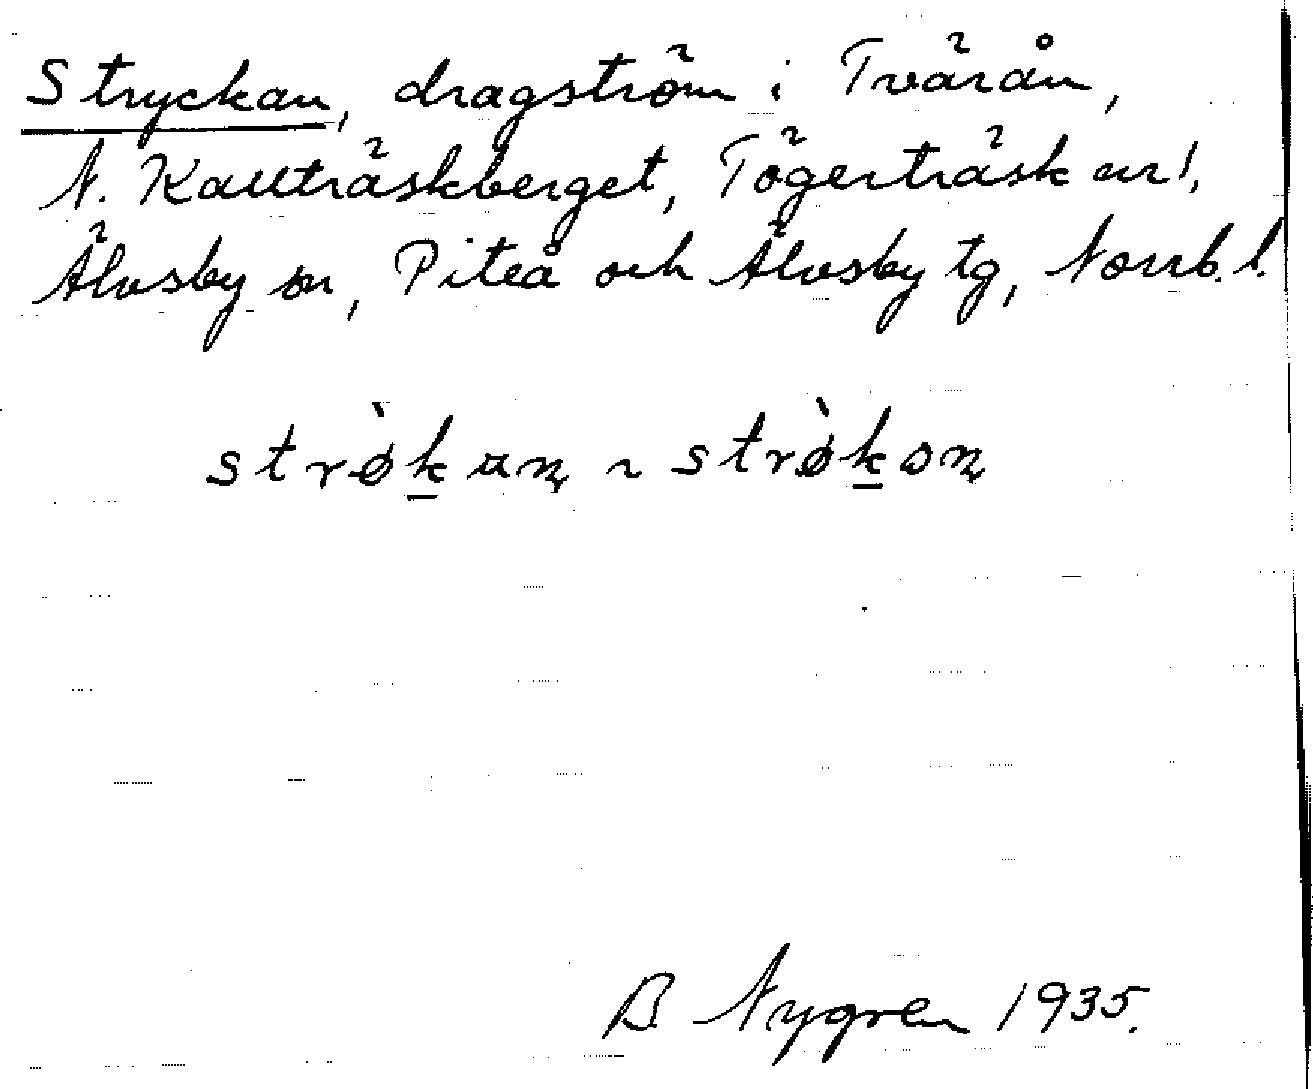 Stryckan, dragström i Tvärån,
N. Kallträskberget, Tögerträsk enl.
Älvsby sn, Piteå och Älvsby tg, Norrb. l.
strø̀kan ~ strø̀kon
B. Nygren 1935.